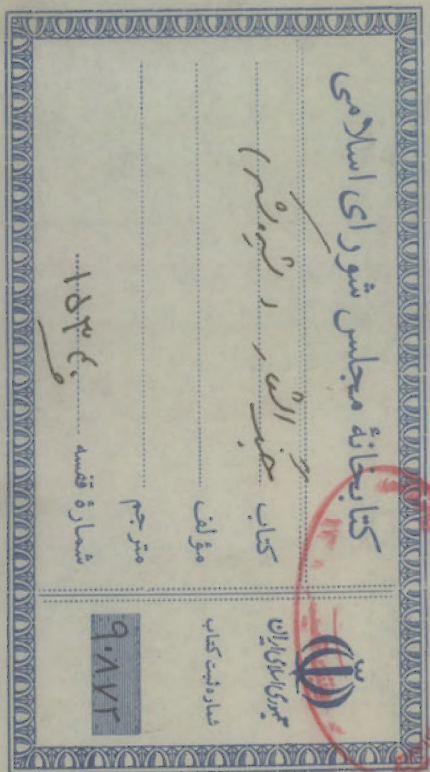 کتابخانهٔ مجلس شورای اسلامی
کتاب
مؤلف
مترجم
شمارهٔ قفسه ۱۵۳۴۰
جمهوری اسلامی ایران
شماره ثبت کتاب
۹۰۸۷۲